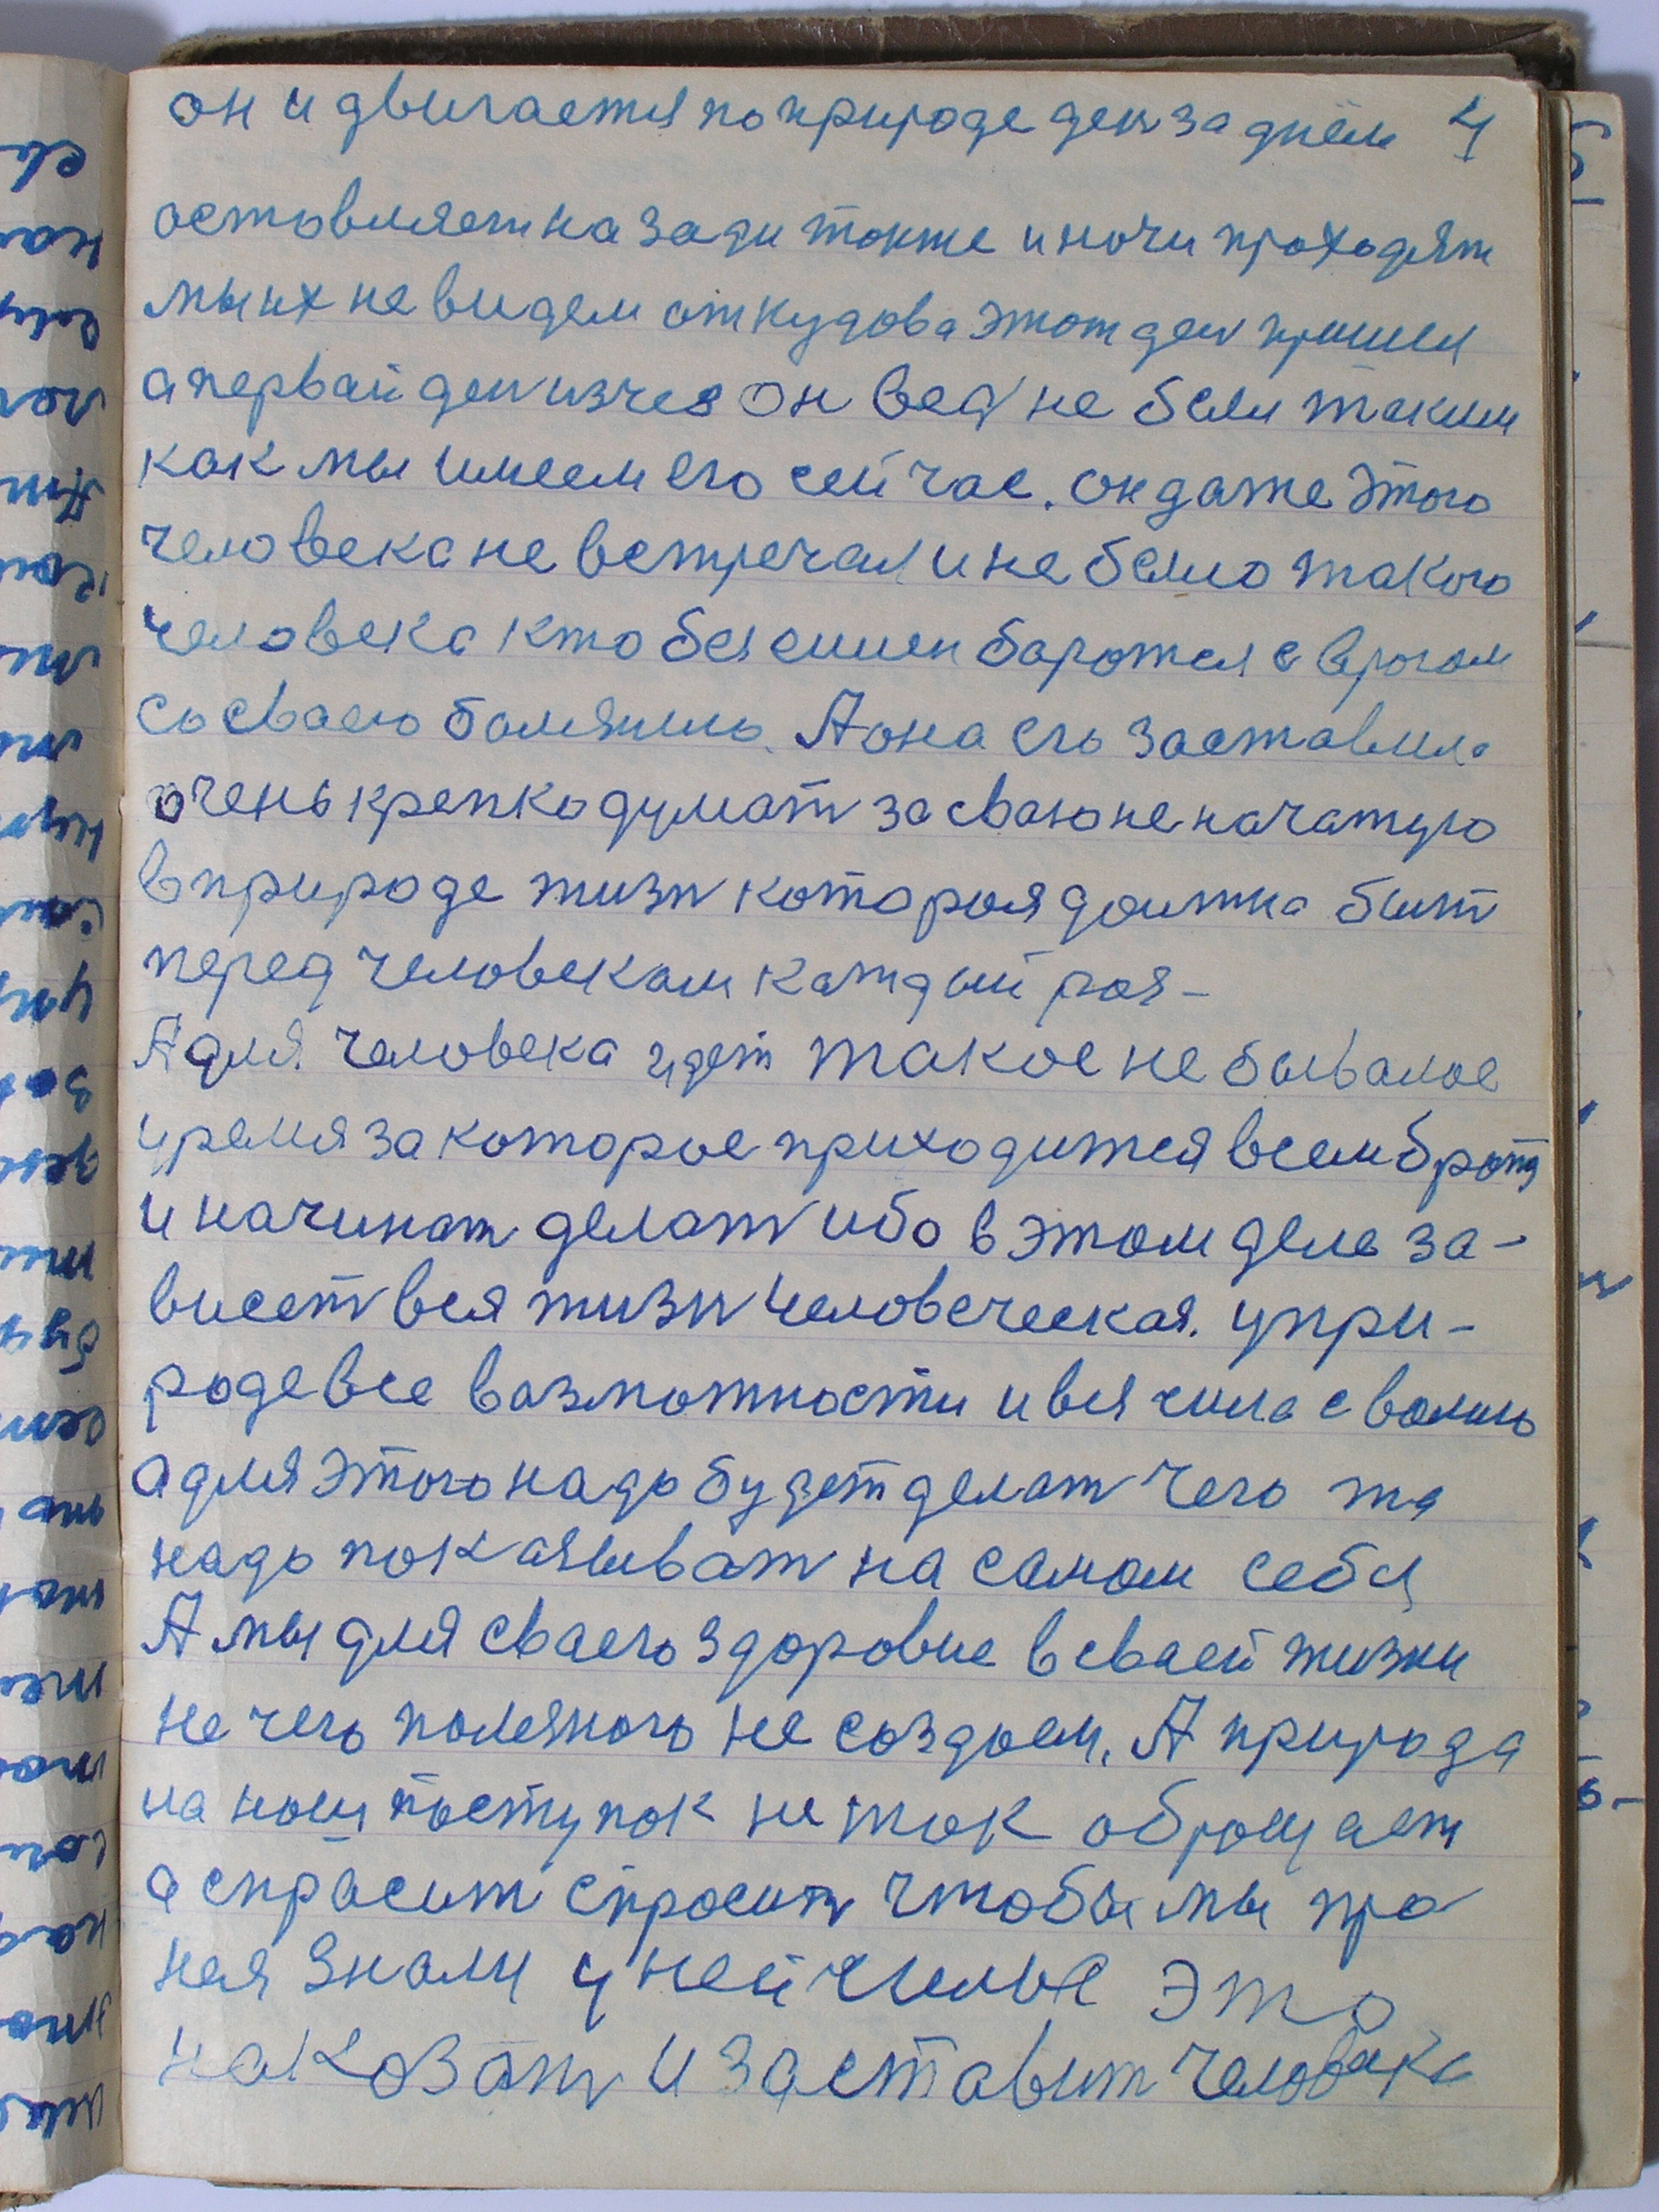 он и двигается по природе ден за днём 4
оставляет на зади токже и ночи проходят
мы их не видем откудова этот ден пришел
а первай ден изчез он вед не был таким
как мы имеем его сейчас. он даже этого
человека не встречал и не было такого
человека кто бы сумел баротся с врагом
со сваею болезнию. А она его заставила
очень крепко думат за сваю не начатую
в природе жизн которая должна быт
перед человекам каждый раз-
А для человека идет такое не бывалое
время за которое приходится всем брат
и начинат делат ибо в этом деле за-
висет вся жизн человеческая. у при-
роде все вазможности и вся чила с волию
а для этого надо будет делат чего та
надо показыват на самом себя
А мы для сваего здоровие в сваей жизни
не чего полезного не создаем. А природа
на наш поступок не так обращает
а спрасит спросит чтобы мы про
нея знали у ней чилы это
наказат и заставит человека